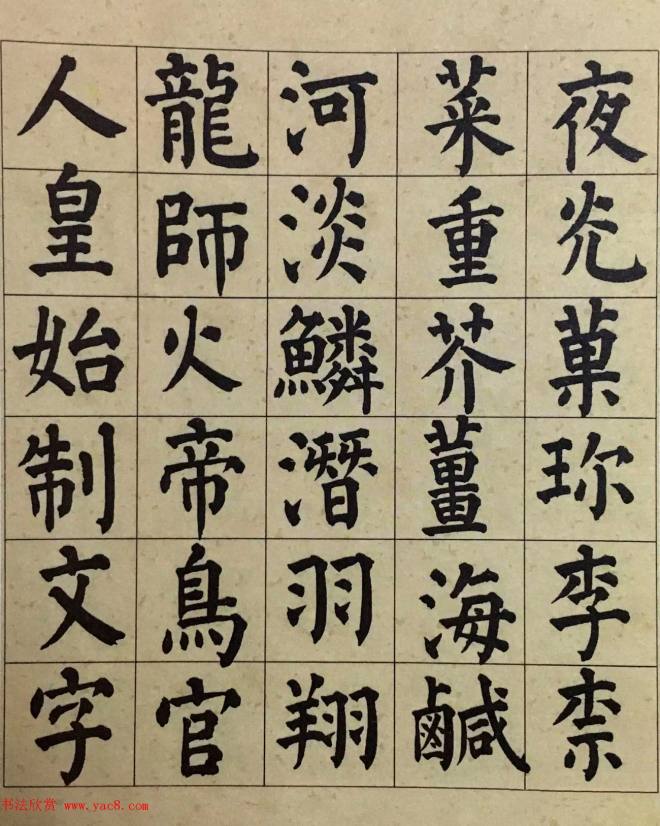 夜光菓珎李柰
菜重芥薑海鹹
河淡鱗潛羽翔
龍師火帝鳥官
人皇始制文字
书法欣赏 www.yac8.com